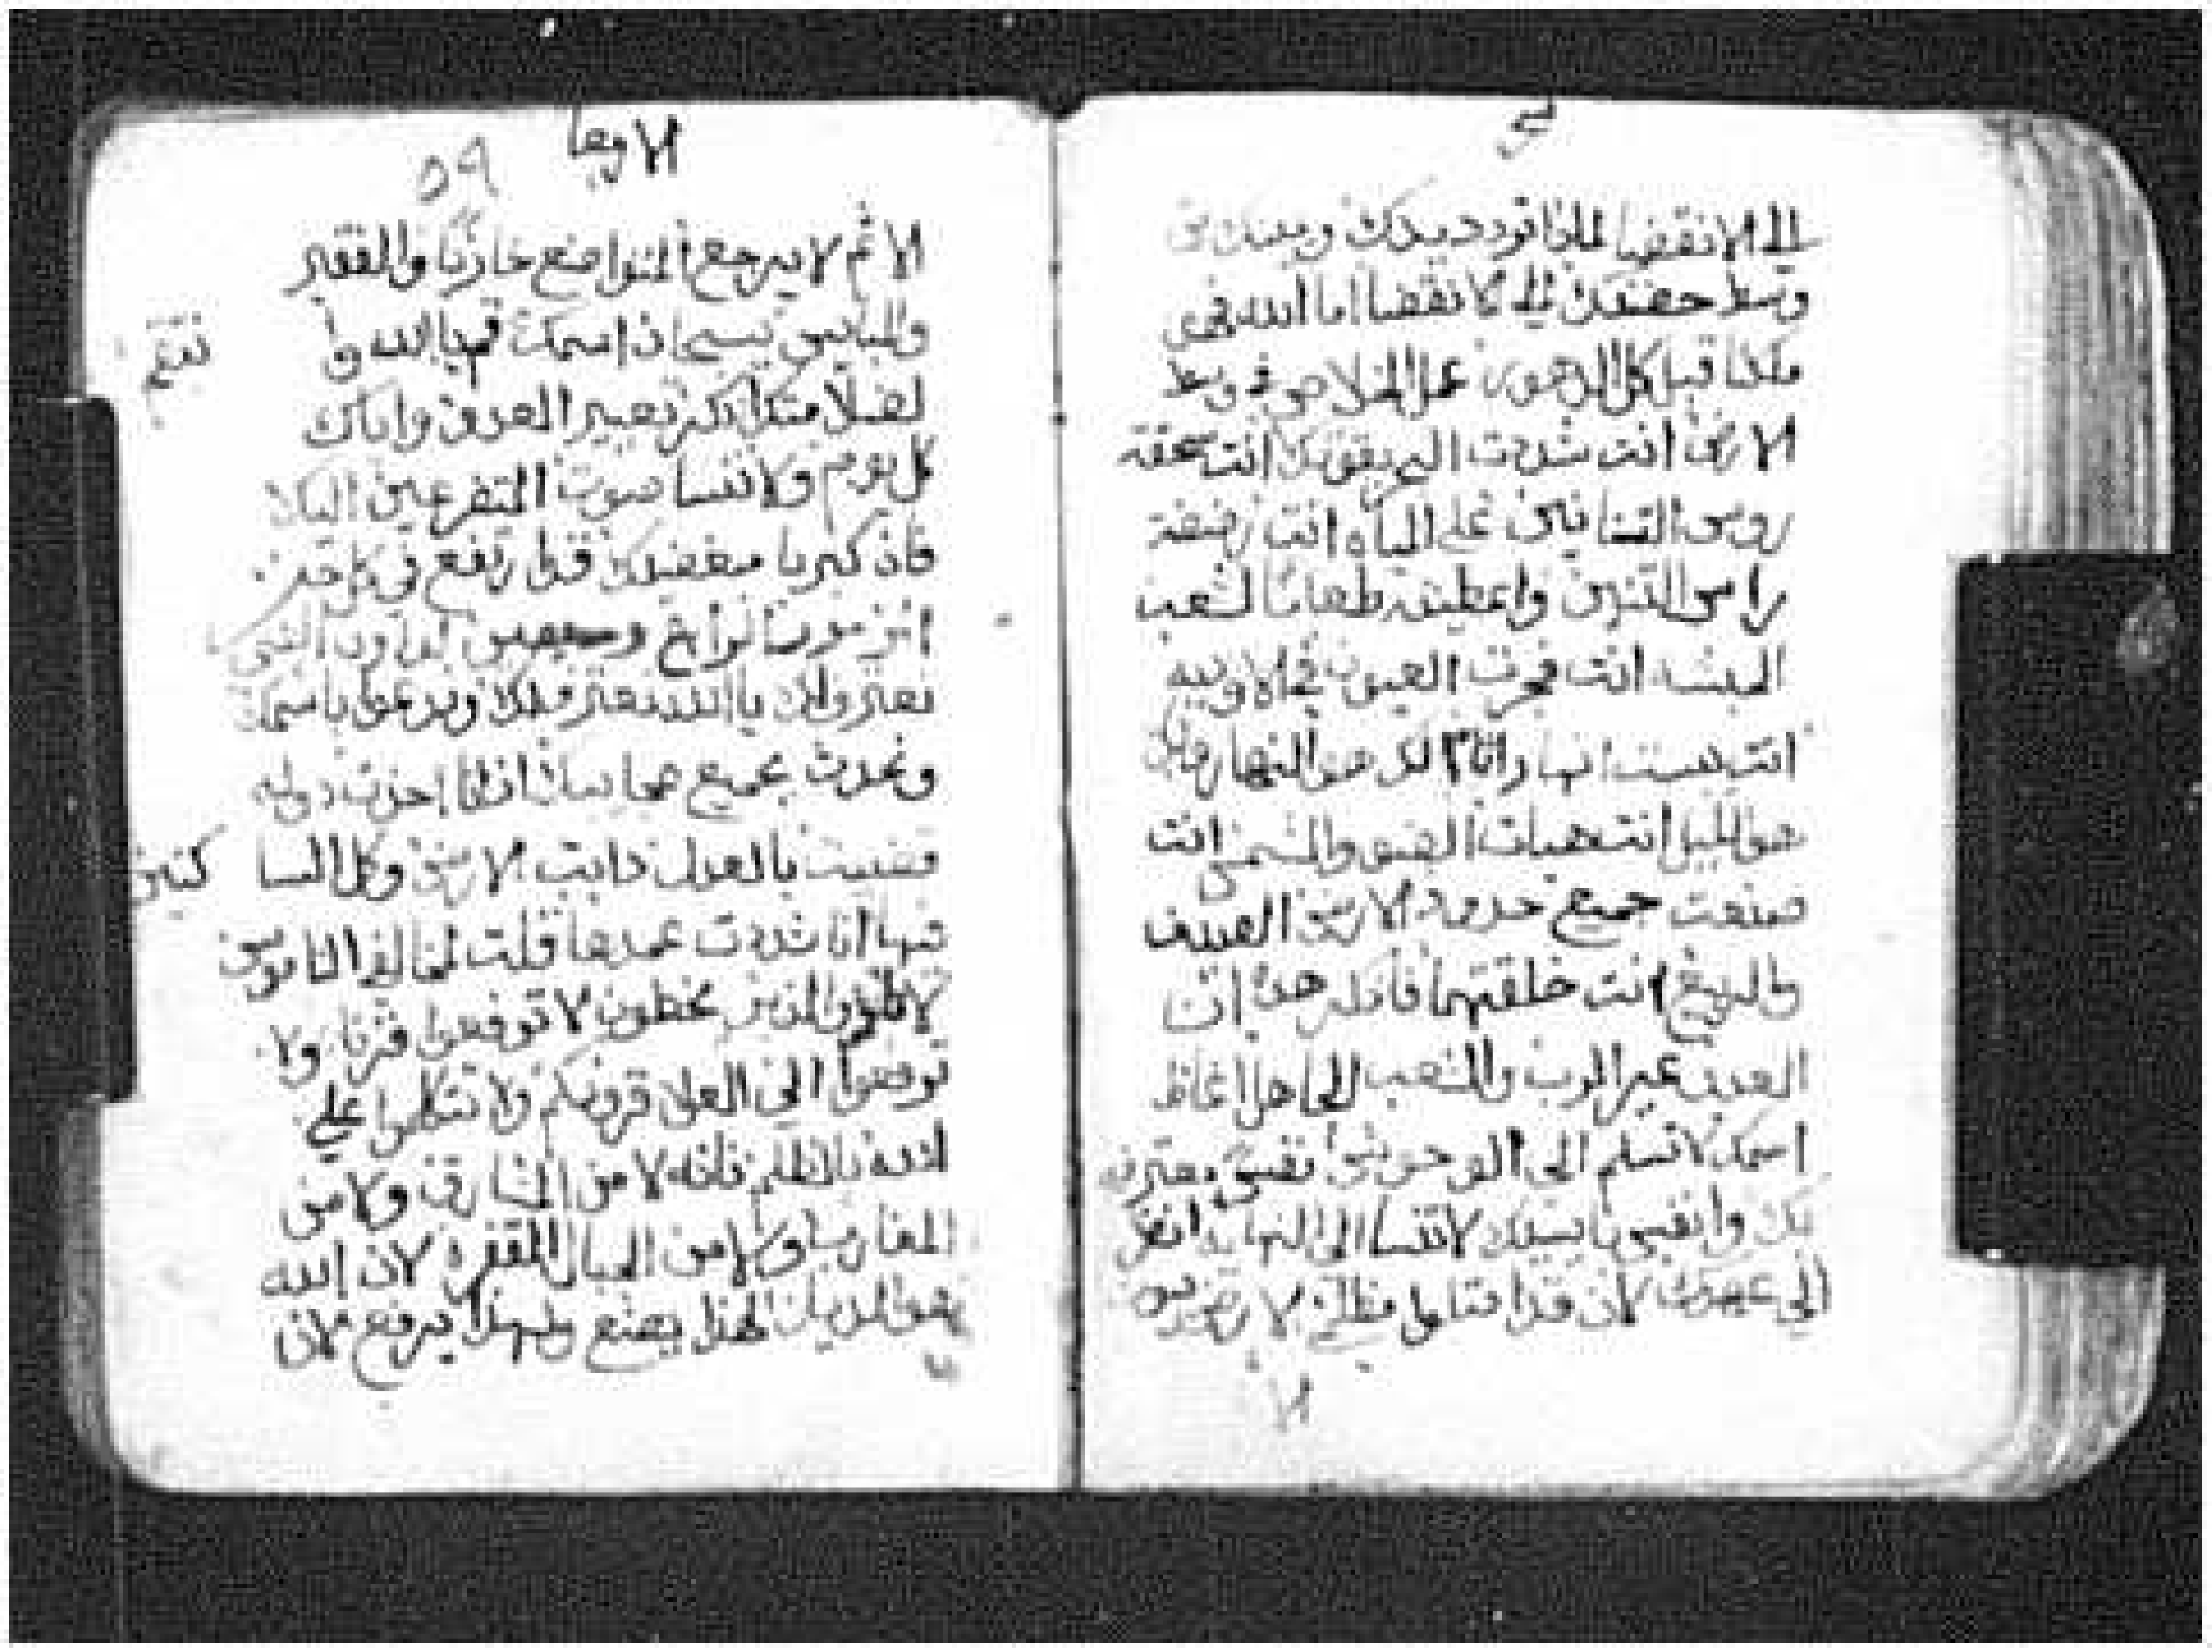 الي الانقضا لماذا تردد يدك ويمينك من
وسط حضنك الي الانقضا اما الله فهوى
ملكنا قبل كل الدهور عمل الخلاص في وسط
الارض انت شددت البحر بقوتك انت سحقت
روس التنانين على المياه انت رضضت
راس التنين واعطيته طعاما لشعب
الحبشه انت فجرت العيون في الاوديه
انت يبست انهار اتام لك هو النهار ولك
هو الليل انت هيات الضو والشمس انت
صنعت جميع حدود الارض الصيف
والربيع انت خلقتهما فاذكر هذا ان
العدو عير الرب والشعب الجاهل اغاظ
اسمك لا تسلم الى الوحوش نفس معترفه
بك وانفس بايسيك لا تنسا الى النهايه انظر
الى عهدك لان قد امتلو مظلمي الارض بيوت
الا
الاربعا
٥٩
الاثم لا يرجع المتواضع خازيا والفقير
والبايس يسبحان اسمك قم يا الله و
كل يوم ولا تنسا صوت المتضرعين اليك
فان كبريا مبغضيك قد ارتفع في كل حين
نعترف لك يا الله نعترف لك وندعو باسمك
ونحدث بجميع عجايبك اذا انا اخذت
قضيت بالعدل ذابت الارض وكل السا كنين
فيها انا شددت عمدها قلت لمخالفي الناموس
والذين يخطون لا ترفعوا قرنا ولا
ترفعوا الى العلا قرونكم ولا تتكلموا علي
الله بالظلم فانه لا من المشارق ولا من
المغارب ولا من الجبال المقفره لان الله
هو الديان لهذا يضع ولهذا يرفع لان